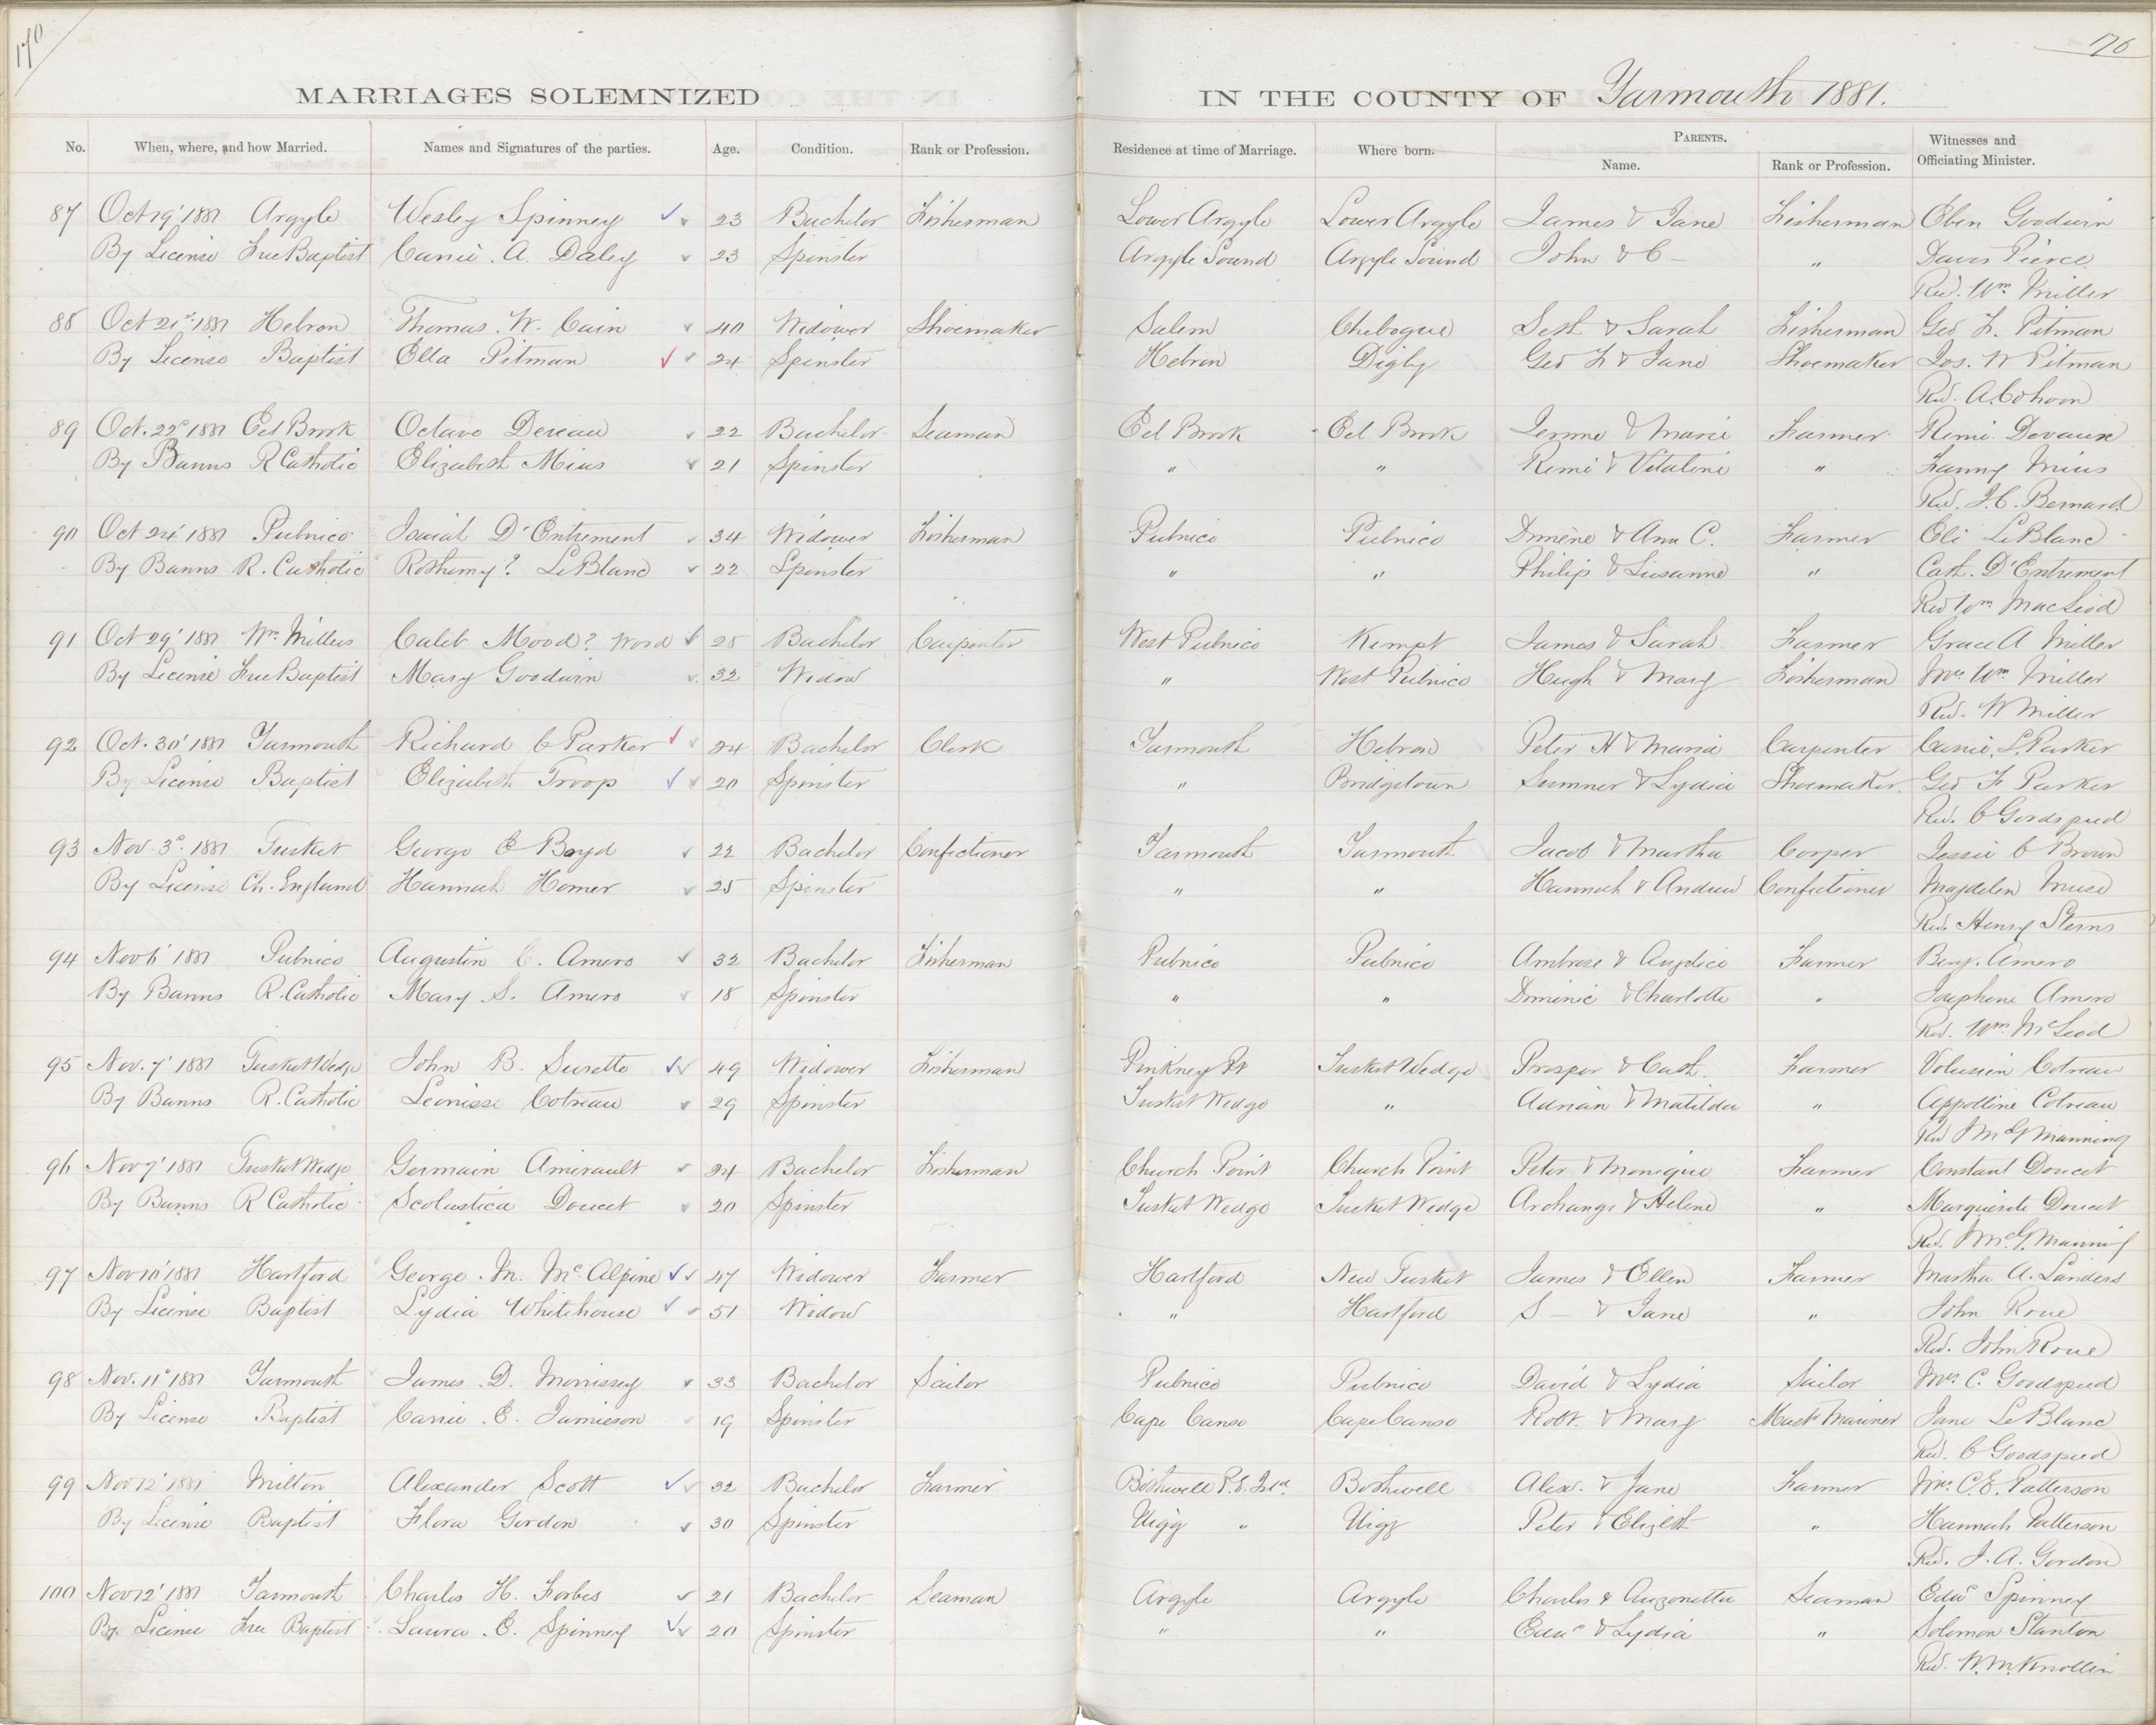 170
176
MARRIAGES SOLEMNIZED IN THE COUNTY OF Yarmouth 1881.
No. When, where, and how Married. Names and Signatures of the parties. Age. Condition. Rank or Profession. Residence at time of Marriage. Where born. PARENTS. Name. Rank or Profession. Witnesses and Officiating Minister.
87 Oct 19' 1881 Argyle Wesley Spinney 23 Bachelor Fisherman Lower Argyle Lower Argyle James & Jane Fisherman Eben Goodwin
By License Free Baptist Canie. A. Daley 23 Spinster Argyle Sound Argyle Sound John & C — " Davis Pierce
Rev. Wm. Miller
88 Oct 21st 1881 Hebron Thomas. W. Cain 40 Widower Shoemaker Salem Chebogue Seth & Sarah Fisherman Geo F. Pitman
By License Baptist Ella Pitman 24 Spinster Hebron Digby Geo F & Jane Shoemaker Jos. W Pitman
Rev. A. Cohoon
89 Oct. 22d 1881 Eel Brook Octave Deveau 22 Bachelor Seaman Eel Brook Eel Brook Jerome & Marie Farmer Remi Devaux
By Banns R Catholic Elizabeth Mius 21 Spinster " " Remi & Vitaline " Fanny Mius
Rev. J. C. Bernard
90 Oct 24' 1881 Pubnico Isaiah D'Entrement 34 Widower Fisherman Pubnico Pubnico & Ann C. Farmer Eli LeBlanc
By Banns R. Catholic Rothemy? LeBlanc 22 Spinster " " Philip & Susanne " Cath. D'Entrement
Rev Wm MacLeod
91 Oct 29' 1881 Wm. Millers Caleb Mood? Wood 28 Bachelor Carpenter West Pubnico Kempt James & Sarah. Farmer Grace A Miller
By License Free Baptist Mary Goodwin 32 Widow " West Pubnico Hugh & Mary Fisherman Mrs Wm. Miller
Rev. W Miller
92 Oct. 30' 1881 Yarmouth Richard C Parker 24 Bachelor Clerk Yarmouth Hebron Peter H & Maria Carpenter Canie. L. Parker
By License Baptist Elizabeth Troop 20 Spinster " Bridgetown Sumner & Lydia Shoemaker Geo F Parker
Rev. C Goodspeed
93 Nov. 3d. 1881 Tusket George E Boyd 22 Bachelor Confectioner Yarmouth Yarmouth Jacob & Martha Cooper Jessie C Brown
By License Ch. England Hannah Homer 25 Spinster " " Hannah & Andrew Confectioner Magdelen Muse
Rev. Henry Sterns
94 Nov 6' 1881 Pubnico Augustin C. Amero 32 Bachelor Fisherman Pubnico Pubnico Ambrose & Angelice Farmer Benj. Amero
By Banns R. Catholic Mary S. Amero 18 Spinster " " Dominic & Charlotte " Josephine Amero
Rev. Wm. McLeod
95 Nov. 7' 1881 Tusket Wedge John B. Surette 49 Widower Fisherman Pinkney Pt Tusket Wedge Prosper & Cath. Farmer Volusien Cotreau
By Banns R. Catholic Leonisse Cotreau 29 Spinster Tusket Wedge " Adrian & Matilda " Appolline Cotreau
Rev J McG Manning
96 Nov 7' 1881 Tusket Wedge Germain Amirault 24 Bachelor Fisherman Church Point Church Point Peter & Monique Farmer Constant Doucet
By Banns R Catholic Scolastica Doucet 20 Spinster Tusket Wedge Tusket Wedge Archange & Helene " Marguerite Doucet
Rev. J McG. Manning
97 Nov 10' 1881 Hartford George. M. McAlpine 47 Widower Farmer Hartford New Tusket James & Ellen Farmer Martha A. Landers
By License Baptist Lydia Whitehouse 51 Widow " Hartford S — & Jane " John Rowe
Rev. John Rowe
98 Nov. 11" 1881 Yarmouth James. D. Morrissey 33 Bachelor Sailor Pubnico Pubnico David & Lydia Sailor Mrs C. Goodspeed
By License Baptist Canie. E. Jamieson 19 Spinster Cape Canso Cape Canso Robt. & Mary Mastr Mariner Jane LeBlanc
Rev. C Goodspeed
99 Nov 12' 1881 Milton Alexander Scott 32 Bachelor Farmer Bothwell P.E. Isld. Bothwell Alex. & Jane Farmer Mrs. C. E. Patterson
By License Baptist Flora Gordon 30 Spinster Uigg " Uigg Peter & Elizbth " Hannah Patterson
Rev. J. A. Gordon
100 Nov 12' 1881 Yarmouth Charles H. Forbes 21 Bachelor Seaman Argyle Argyle Charles & Auzonetta Seaman Edwd Spinney
By. License Free Baptist Laura. E. Spinney 20 Spinster " " Edwd & Lydia " Solomon Stanton
Rev. W. M. Knollin